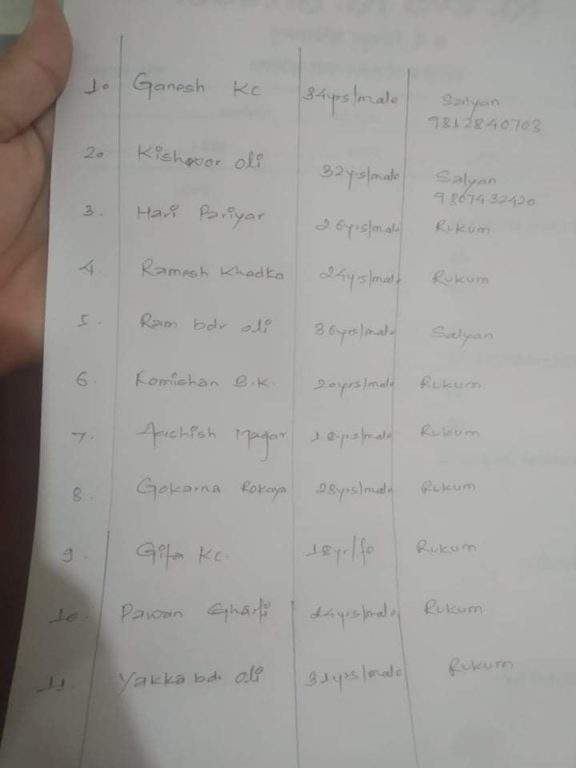 1. Ganesh Kc 34yrs/male Salyan
9812840703
2. Kishwor oli 32yrs/male Salyan
9807432420
3. Hari Pariyar 26yrs/male Rukum
4. Ramesh Khadka 24yrs/male Rukum
5. Ram bdr oli 36yrs/male Salyan
6. Romichan B.K. 20yrs/male Rukum
7. Magar 18yrs/male Rukum
8. Gokarna Rokaya 28yrs/male Rukum
9. Gita Kc. 18yr/fe Rukum
10. Pawan Gharti 24yrs/male Rukum
11. Yakka bdr oli 31yrs/male Rukum